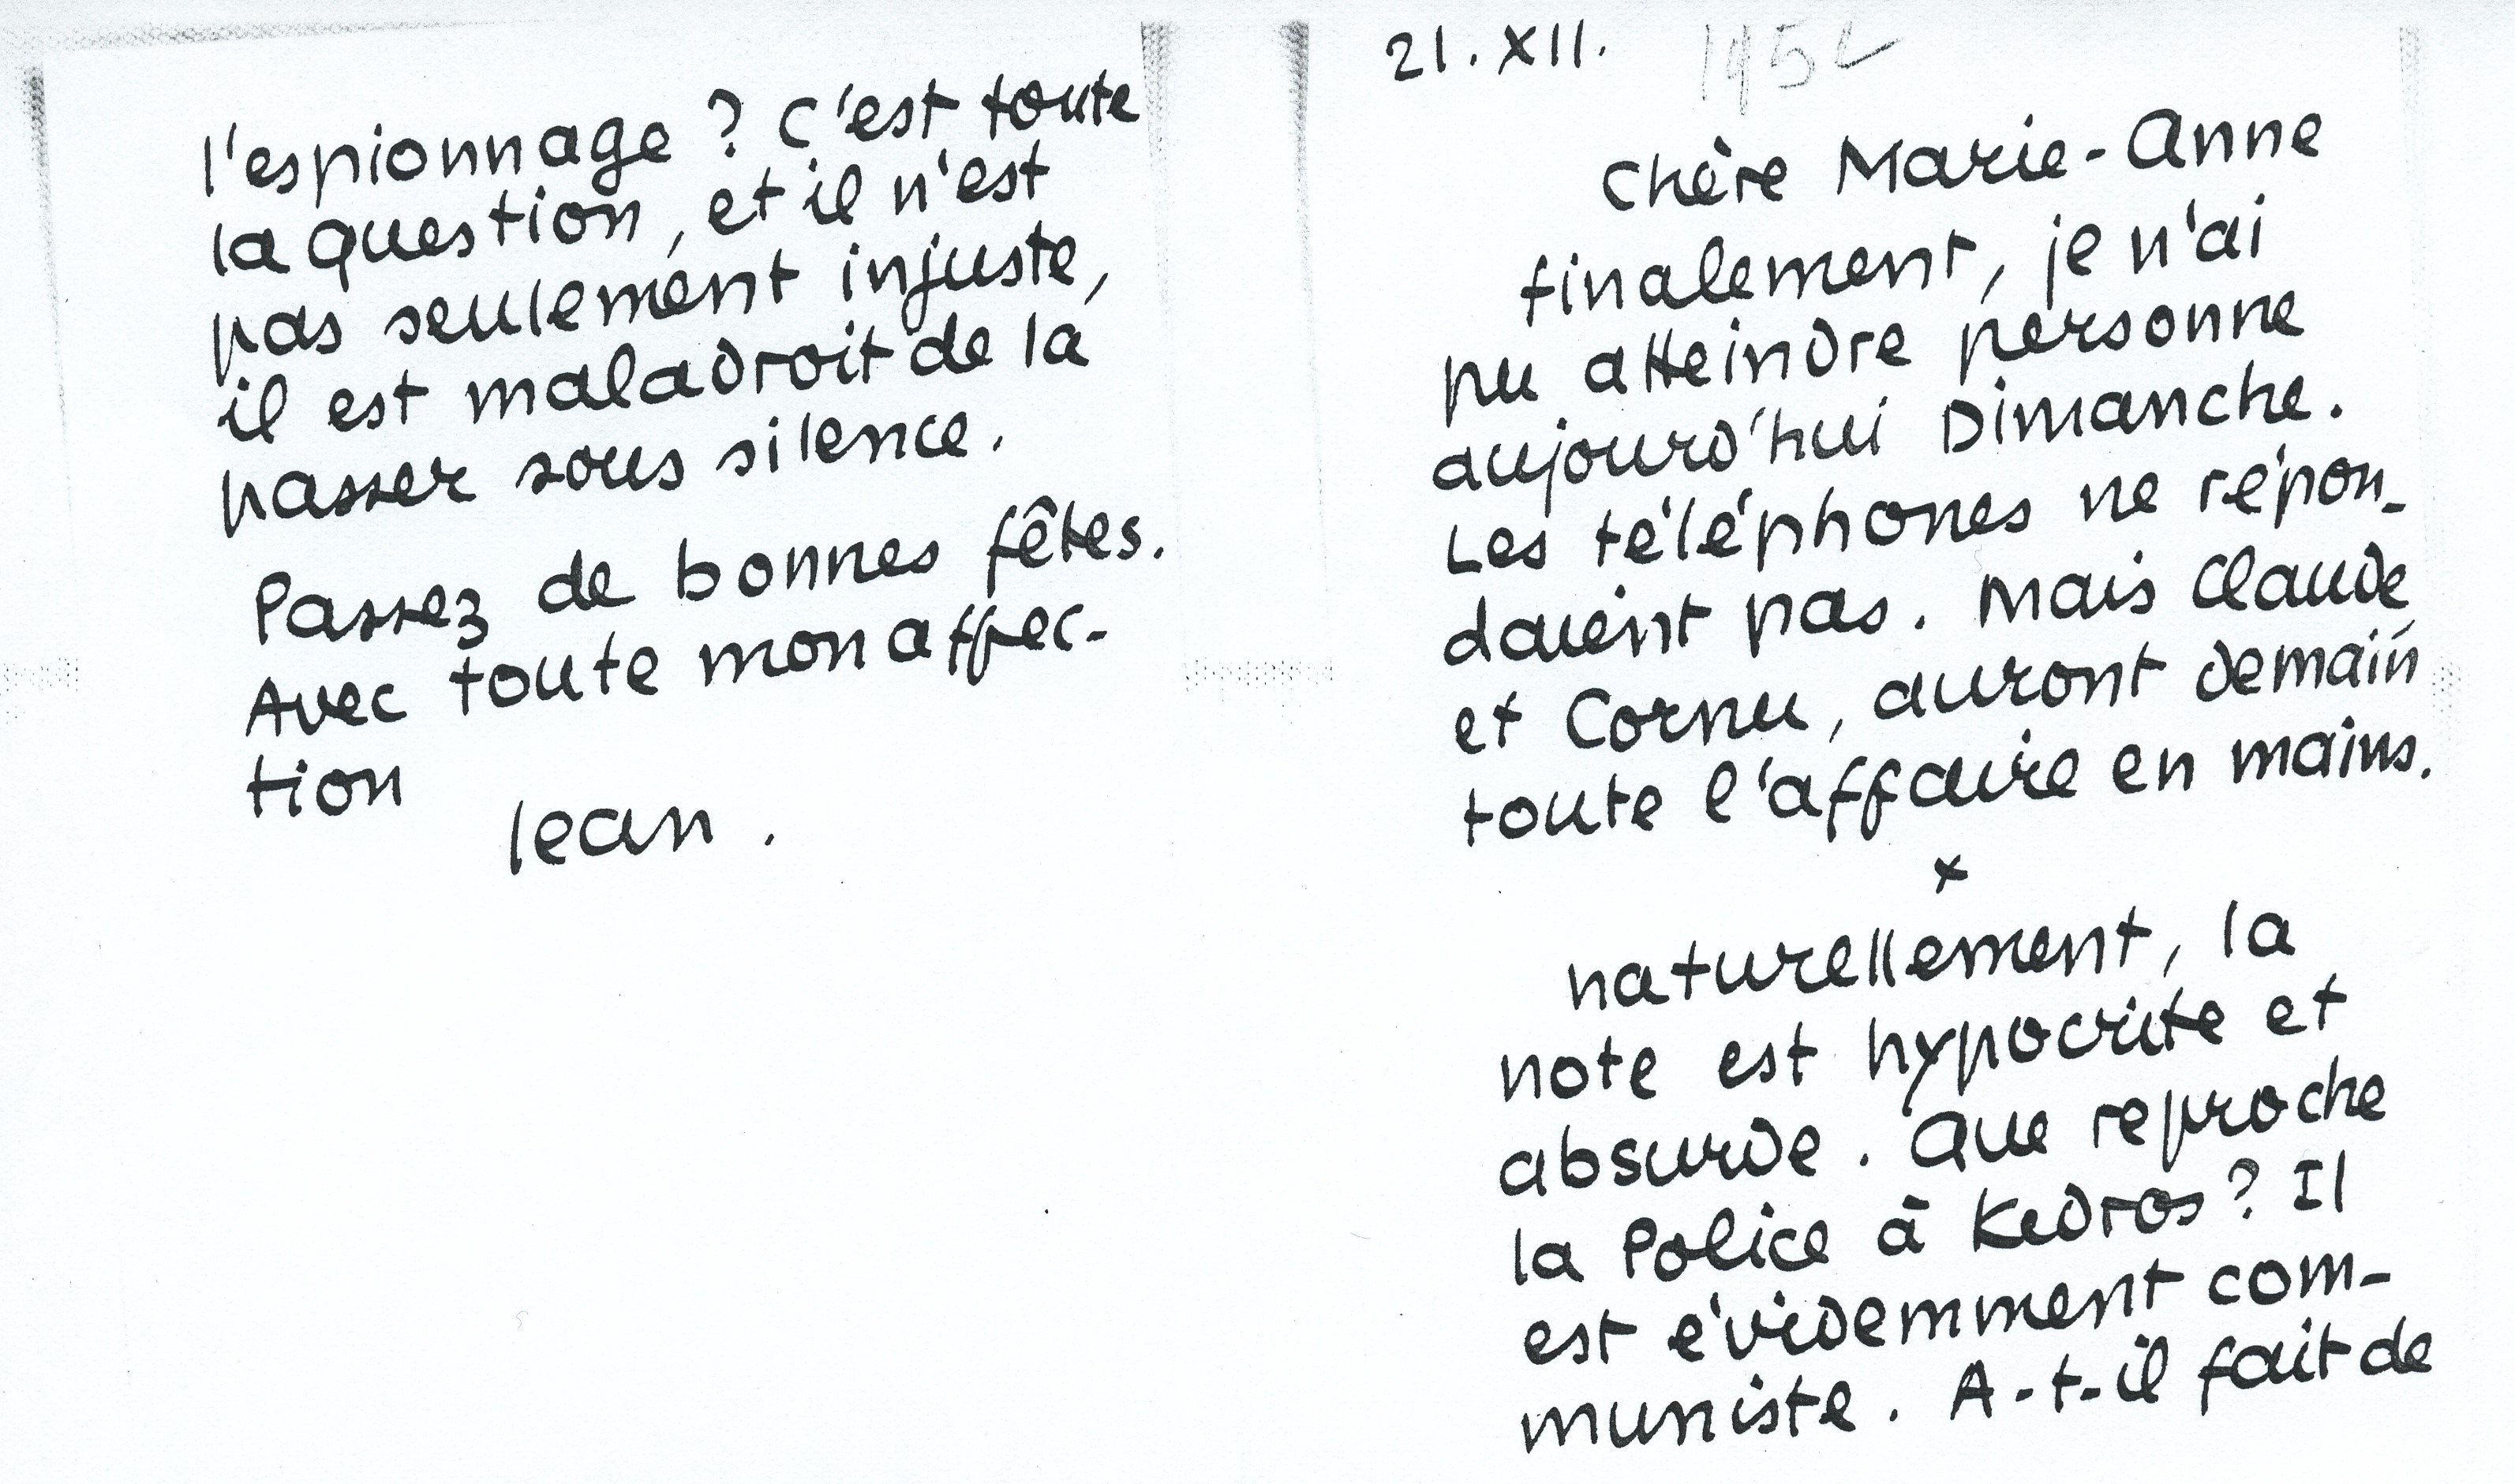 21.XII. 1952
Chère Marie-Anne
finalement, je n'ai
pu atteindre personne
aujourd'hui Dimanche.
Les téléphones ne répon-
daient pas. Mais Claude
et Cornu, auront demain
toute l'affaire en mains.
x
naturellement, la
note est hypocrite et
absurde. Que reproche
la Police à Kedros? Il
est évidemment com-
muniste. A-t-il fait de
l'espionnage? C'est toute
la question, et il n'est
pas seulement injuste,
il est maladroit de la
passer sous silence.
Passez de bonnes fêtes.
Avec toute mon affec-
tion
Jean.